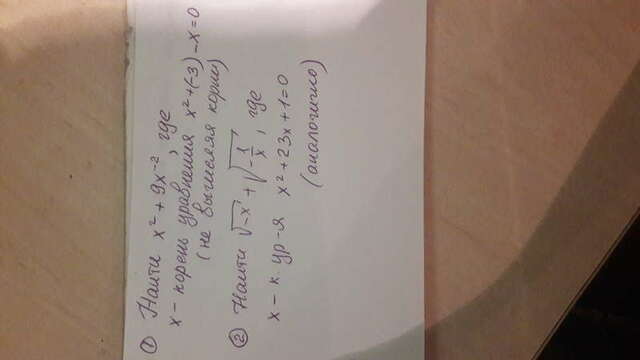 ① Найти x² + 9x⁻², где
x - корень уравнения x²+(-3)-x=0
(не вычисляя корни)
② Найти √-x + √-1/x, где
x - к. ур-я x²+23x+1=0
(аналогично)